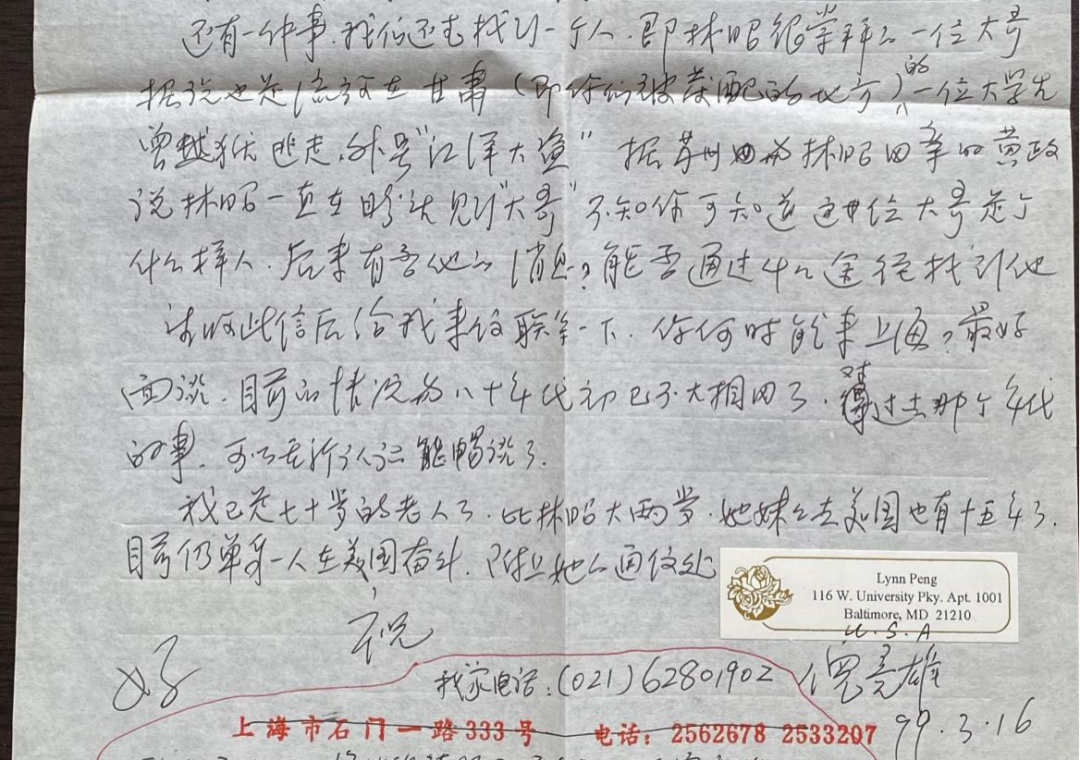 还有一件事，我们还在找另一个人，即林昭很崇拜的一位大哥
据说也是流放在甘肃（即你们被发配的地方）的一位大学生
曾越狱逃走，外号"江洋大盗" 据苏州与林昭同章的黄政
说林昭一直在盼望见到"大哥" 不知你可知道这位大哥是个
什么样人，后来有否他的消息？能否通过什么途径找到他
请收此信后给我来信联系一下，你何时能来上海？最好
面谈，目前的情况与八十年代初已不大相同了，对过去那个年代
的事，可以重新认识 能畅谈了。
我已是七十岁的老人了，比林昭大两岁，她妹妹去美国也有十五年了，
目前仍单身一人在美国奋斗，附上她的通信处
Lynn Peng
116 W. University Pky. Apt. 1001
Baltimore, MD 21210
U.S.A
祝
好
我家电话：(021)62801902 倪竞雄
上海市石门一路333号 电话：2562678 2533207
99.3.16